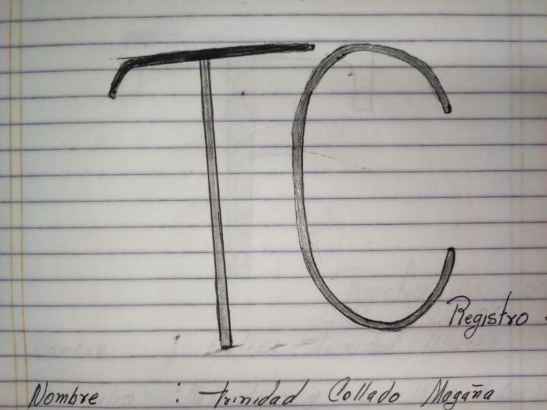 TC
Registro
Nombre : Trinidad Collado Magaña